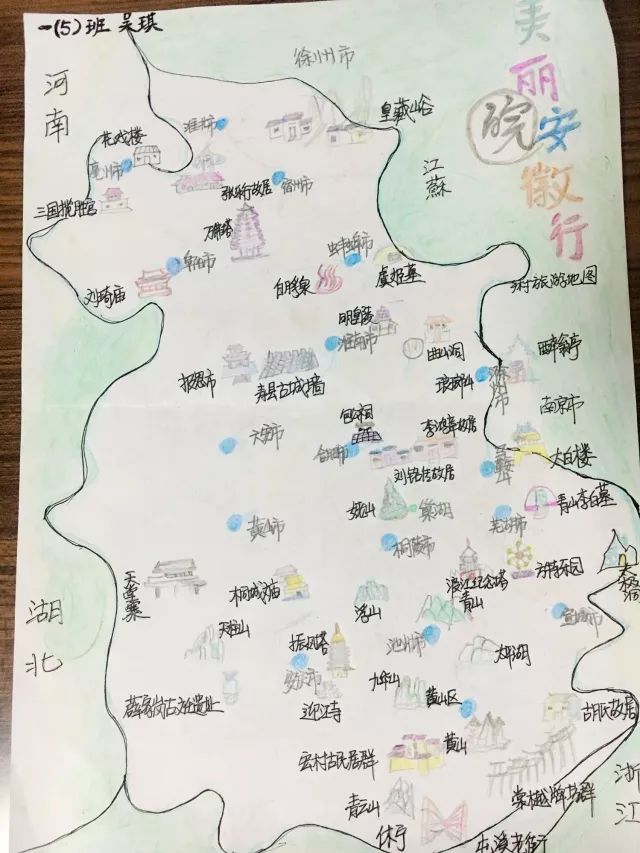 一(5)班 吴琪
美丽安徽行
皖
徐州市
河南
皇藏峪
江蘇
花戏楼
淮北市
亳州市
三国揽胜宫
宿州市
万佛塔
阜阳市
蚌埠市
刘琦庙
白乳泉
虞姬墓
乡村旅游地图
明皇陵
淮南市
曲山洞
报恩寺
寿县古城墙
琅琊山
醉翁亭
南京市
包公祠
李鸿章故居
六安市
合肥市
太白楼
刘铭传故居
马鞍山
青山李白墓
姥山
巢湖
黄山市
芜湖市
桐陵市
天堂寨
桐城文庙
浮山
渡江纪念塔
青山
方特乐园
天柱山
振风塔
池州市
太平湖
宣城市
安庆市
九华山
薛家岗古文化遗址
迎江寺
黄山区
胡氏故居
宏村古民居群
黄山
棠樾牌坊群
湖北
浙江
青云山
休宁
屯溪老街